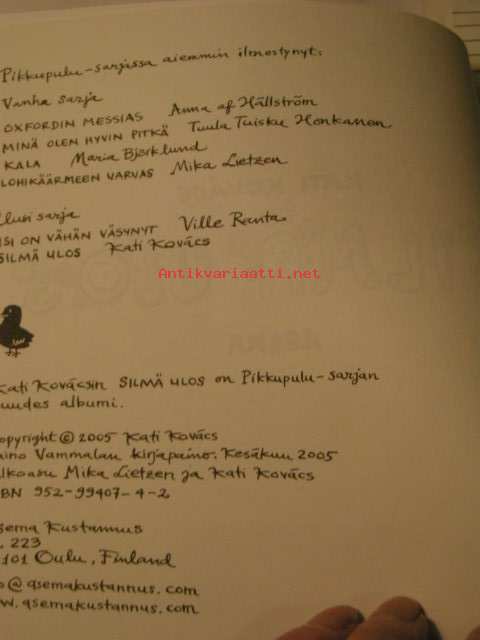 Pikkupulu-sarjassa aiemmin ilmestynyt:
Vanha sarja
OXFORDIN MESSIAS Anna af Hällström
MINÄ OLEN HYVIN PITKÄ Tuula Tuisku Honkanen
KALA Maria Björklund
LOHIKÄÄRMEEN VARVAS Mika Lietzen
Uusi sarja
ISI ON VÄHÄN VÄSYNYT Ville Ranta
SILMÄ ULOS Kati Kovács
Antikvariaatti.net
Kati Kovácsin SILMÄ ULOS on Pikkupulu-sarjan
uudes albumi.
opyright © 2005 Kati Kovács
aino Vammalan kirjapaino. Kesäkuu 2005
lkoasu Mika Lietzen ja Kati Kovács
BN 952-99407-4-2
sema Kustannus
. 223
101 Oulu, Finland
o@asemakustannus.com
w.asemakustannus.com